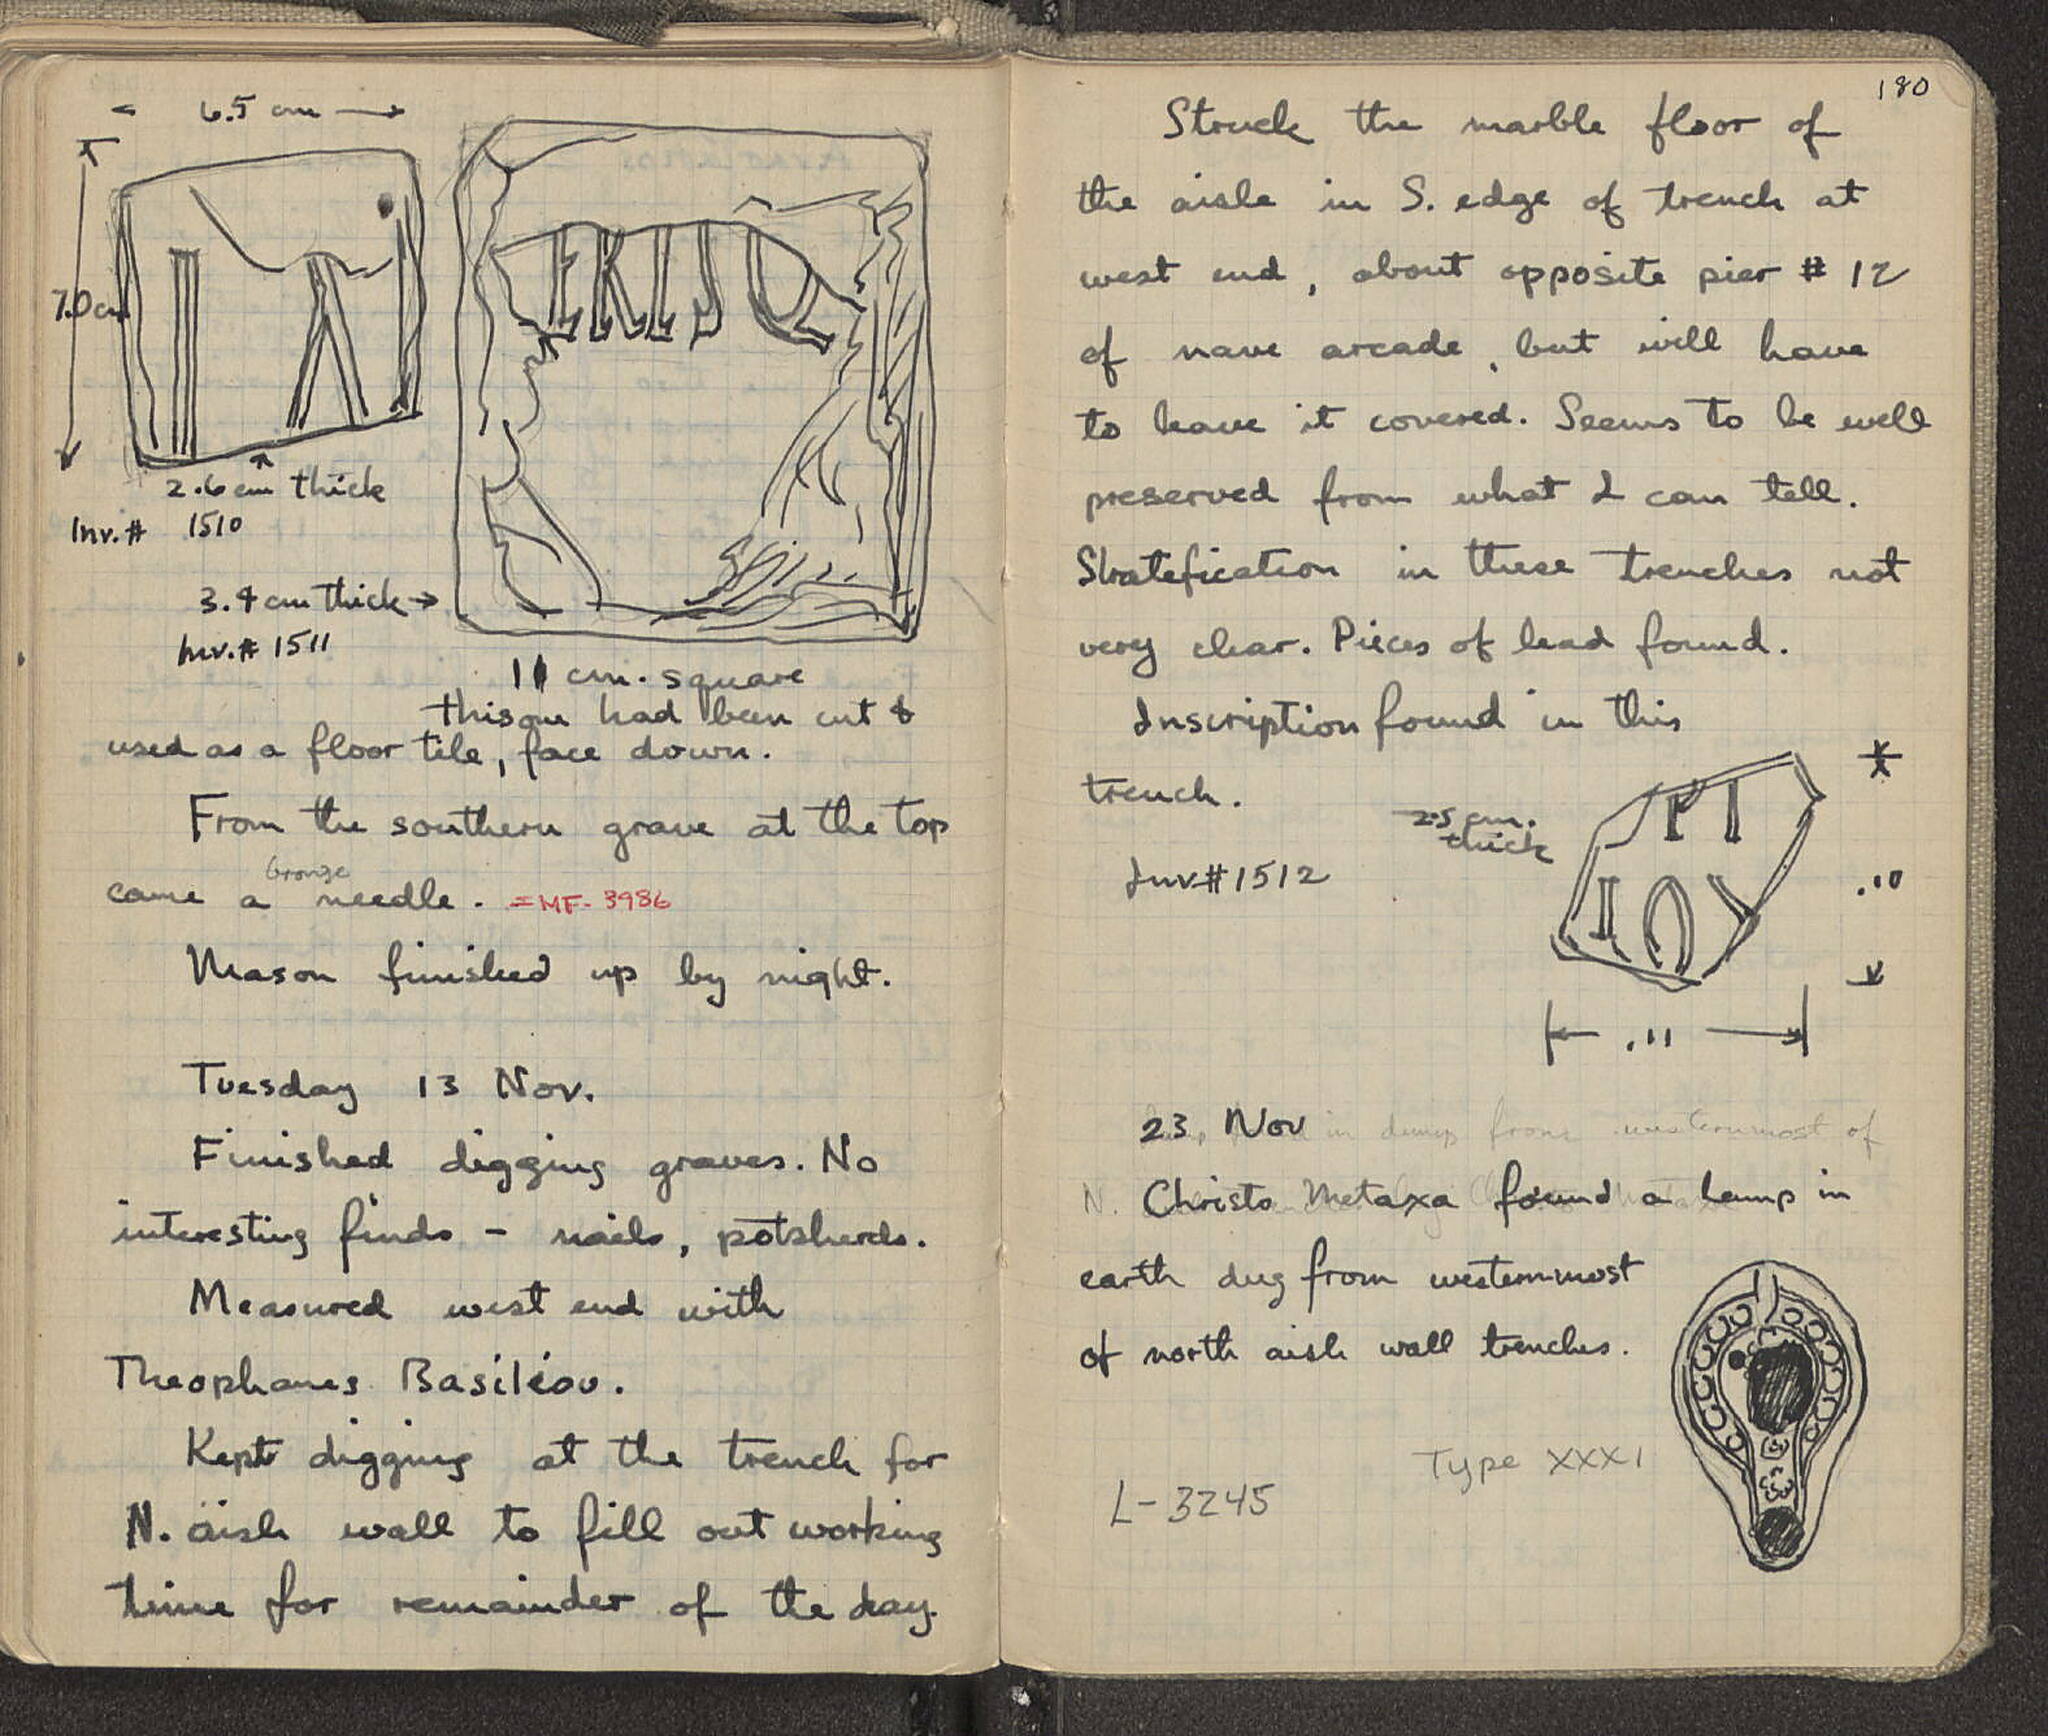 6.5 cm
7.0 cm
2.6 cm thick
Inv. # 1510
EKISQ
3.4 cm thick →
Inv. # 1511
11 cm. square
this one had been cut &
used as a floor tile, face down.
From the southern grave at the top
bronze
came a needle. = MF- 3986
Mason finished up by night.
Tuesday 13 Nov.
Finished digging graves. No
interesting finds – nails, potsherds.
Measured west end with
Theophanes Basiléou.
Kept digging at the trench for
N. aisle wall to fill out working
time for remainder of the day.
180
Struck the marble floor of
the aisle in S. edge of trench at
west end, about opposite pier # 12
of nave arcade, but will have
to leave it covered. Seems to be well
preserved from what I can tell.
Stratefication in these trenches not
very clear. Pieces of lead found.
Inscription found in this
trench.
2.5 cm.
thick
Inv # 1512
.10
.11
23 Nov in dump from westernmost of
N. Christo Metaxa found a lamp in
earth dug from westernmost
of north aisle wall trenches.
Type XXXI
L- 3245